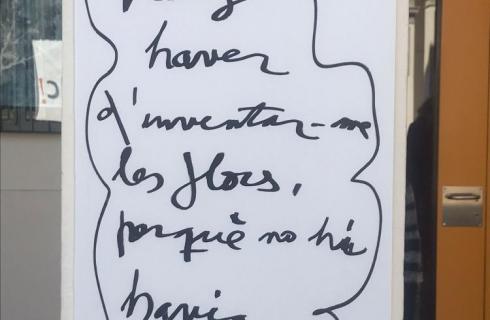 haver
d'inventar-me
les flors,
perquè no hi
havia